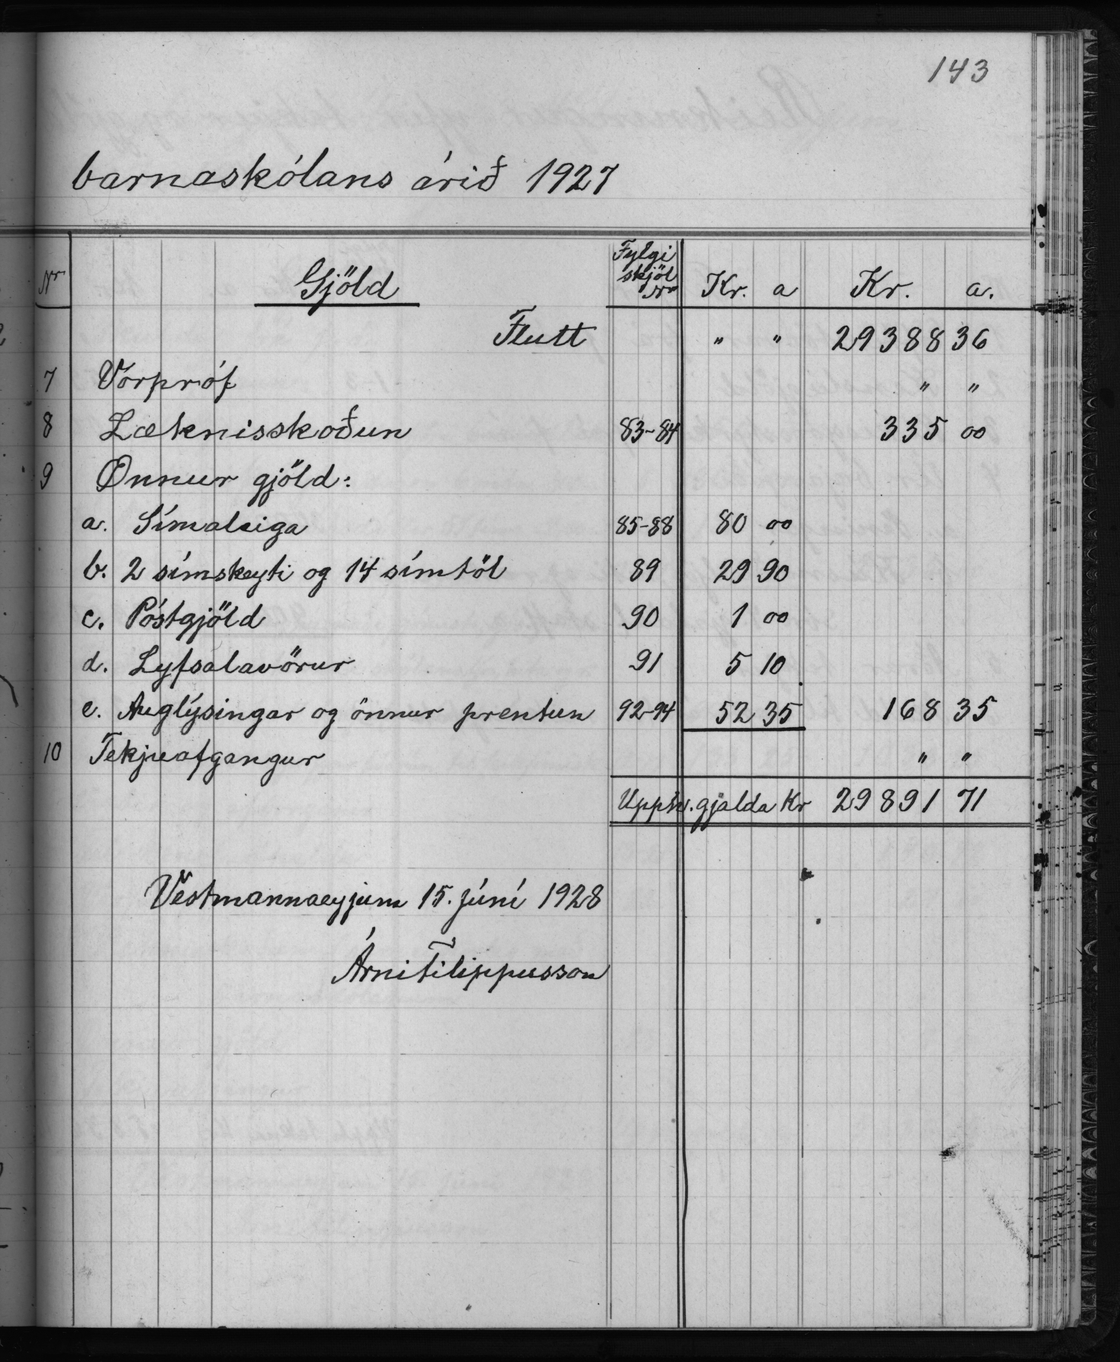 143
barnaskólans árið 1927
Nr Gjöld Fylgi skjöl Nr Kr. a Kr. a.
Flutt " " 29388 36
7 Vorpróf " "
8 Læknisskoðun 83-84 335 00
9 Önnur gjöld:
a. Símaleiga 85-88 80 00
b. 2 símskeyti og 14 símtöl 89 29 90
c. Póstgjöld 90 1 00
d. Lyfsalavörur 91 5 10
e. Auglýsingar og önnur prentun 92-94 52 35 168 35
10 Tekjuafgangur " "
Upphv. gjalda Kr 29891 71
Vestmannaeyjum 15. júní 1928
Árni Filippusson